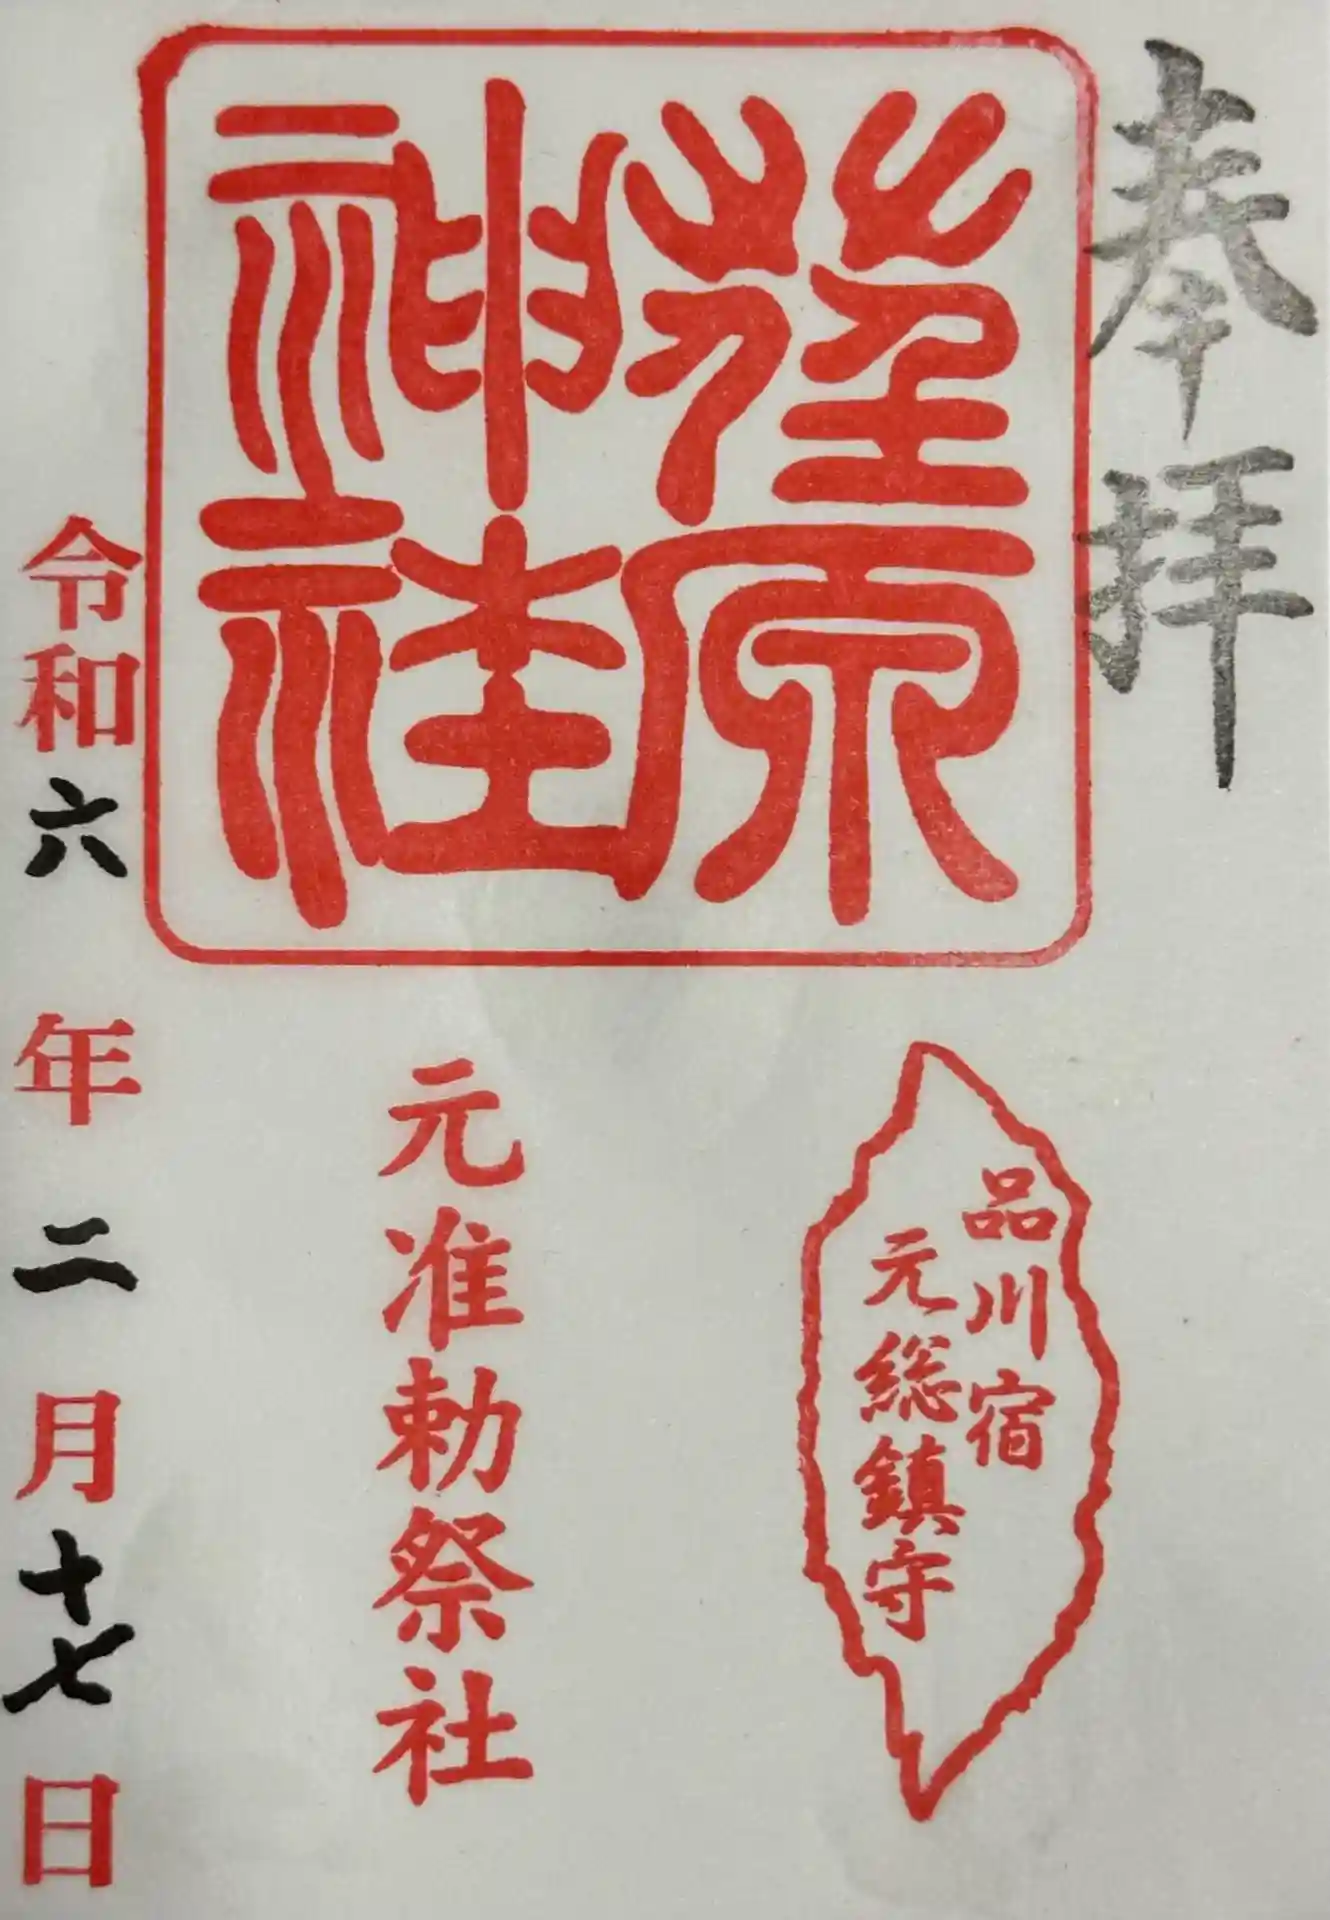 奉拝
蓙原
神社
品川宿
元総鎮守
元准勅祭社
令和六年二月十七日